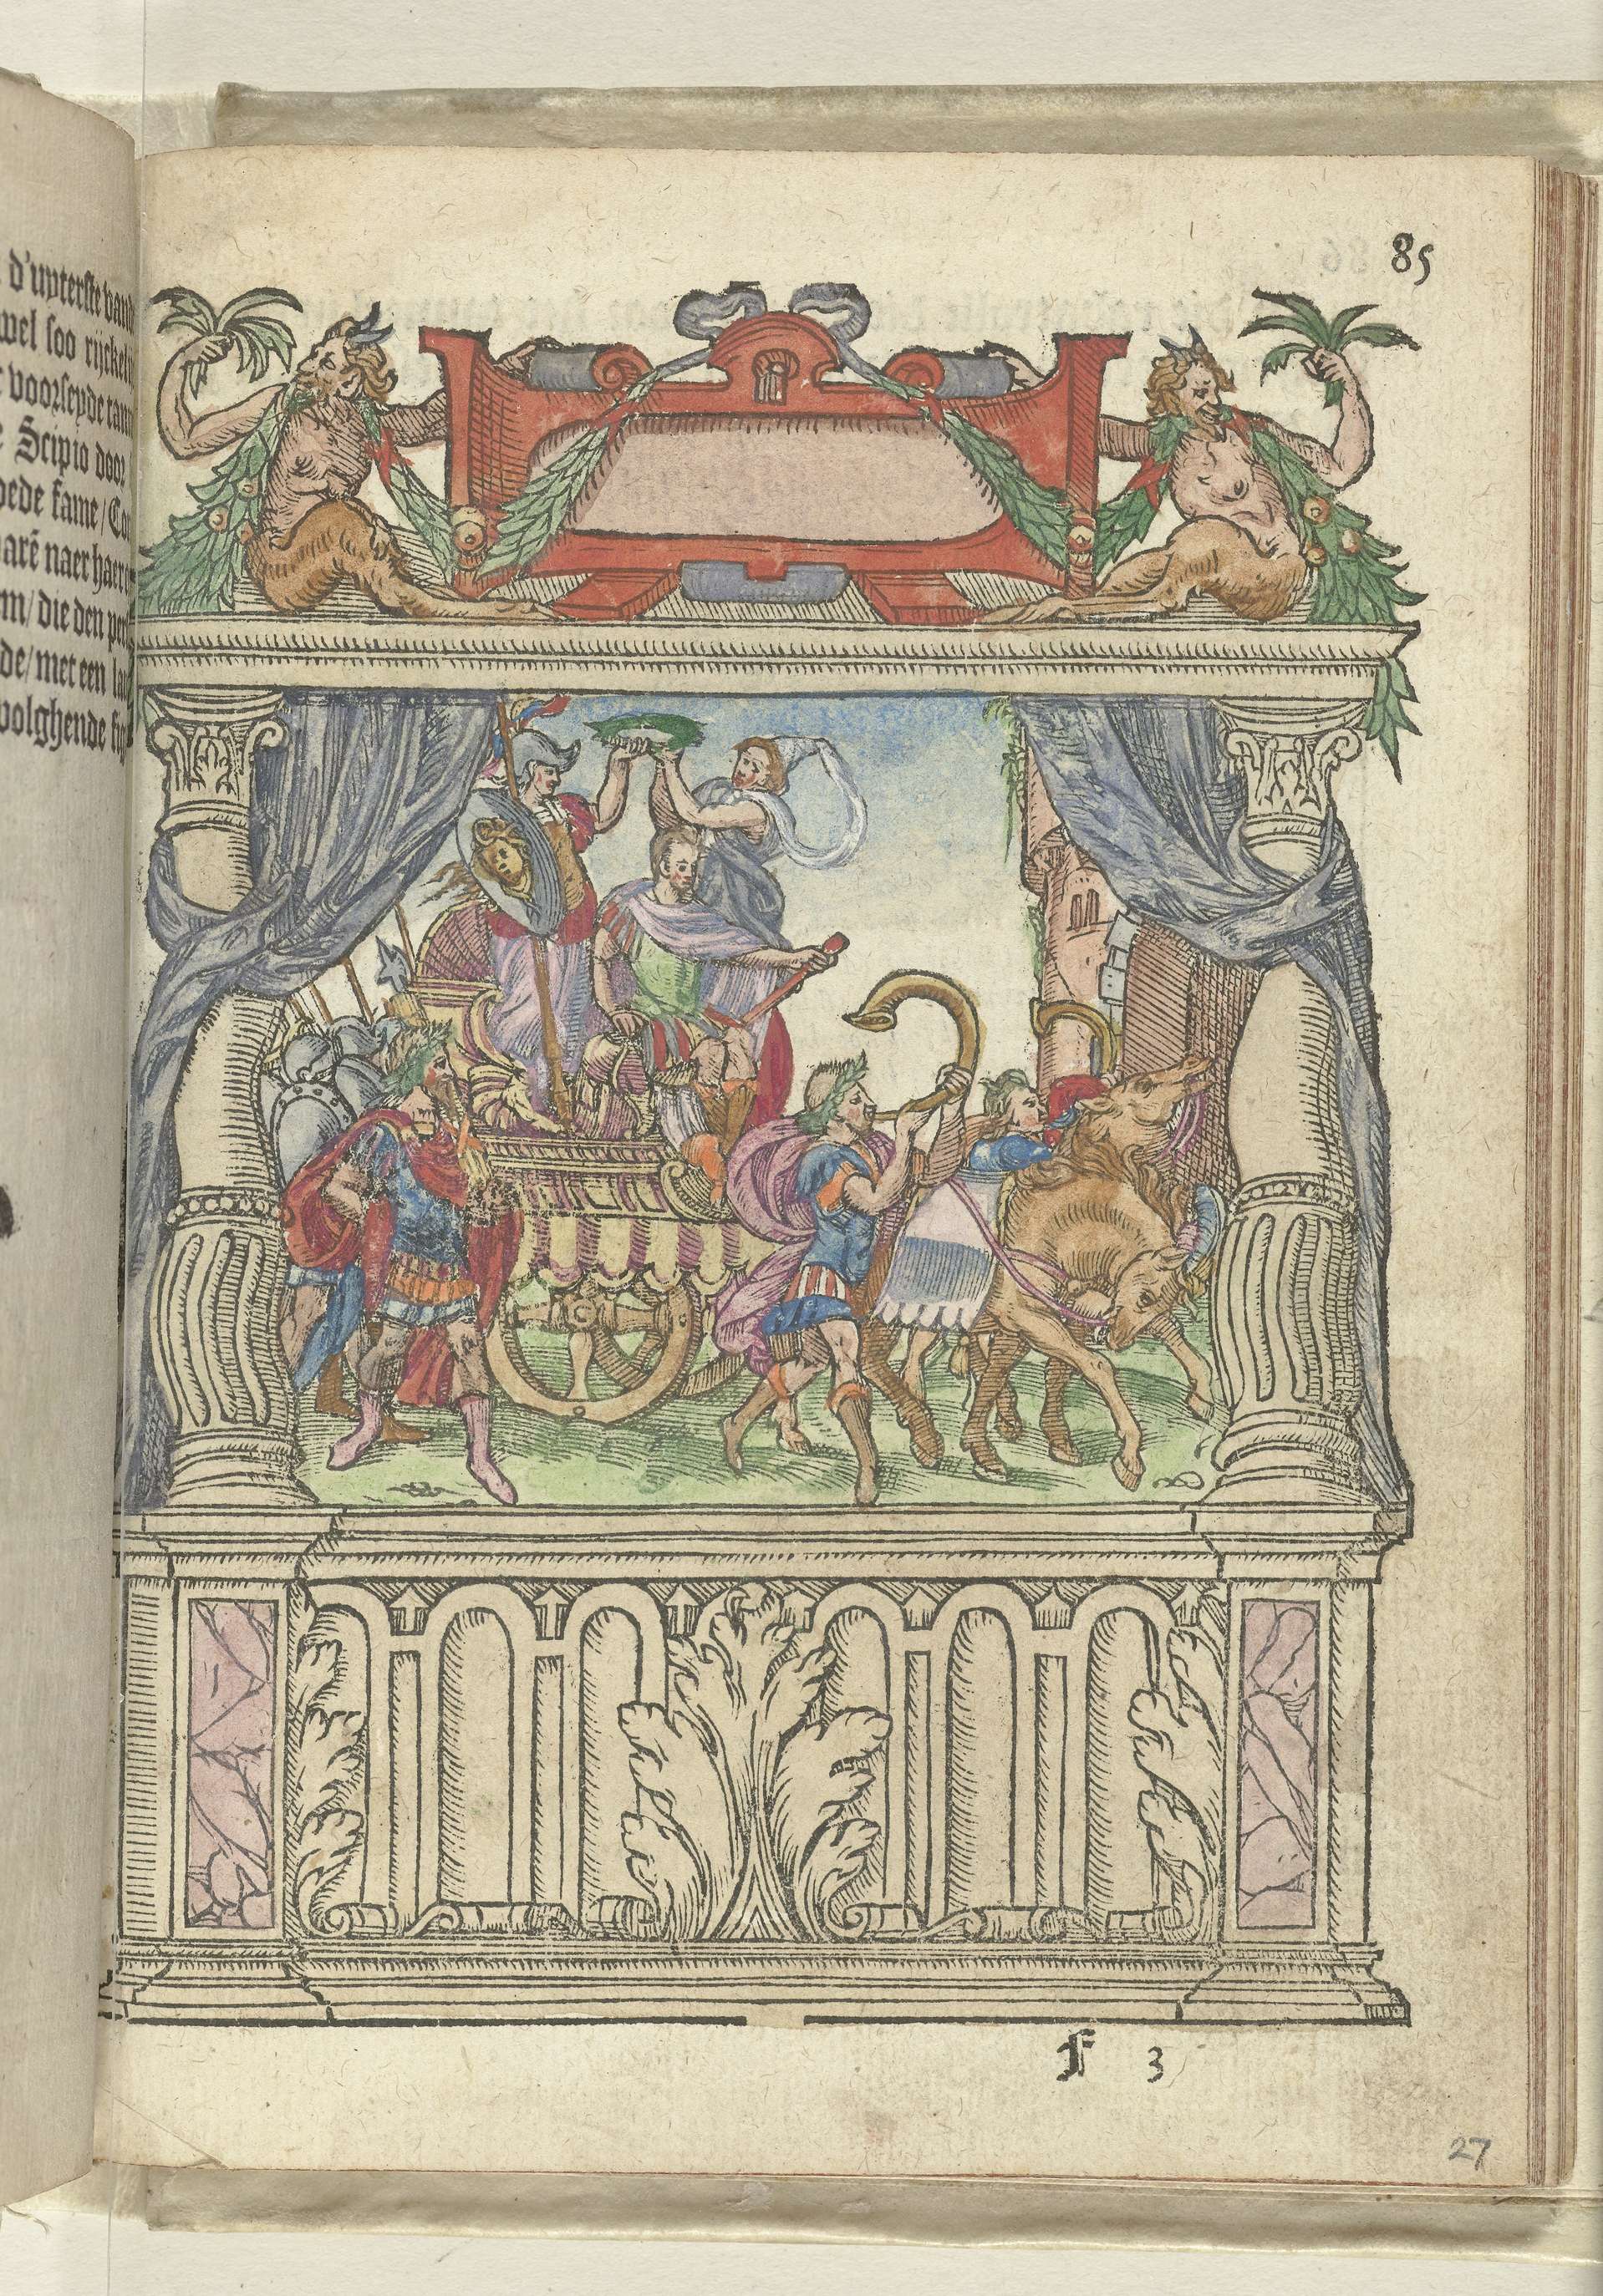 d'uyterste vand
wel soo rijckel
voorseyde tam
Scipio door
oede fame / Co
naer haer
die den
de / met een
volghende fig
85
F 3
27